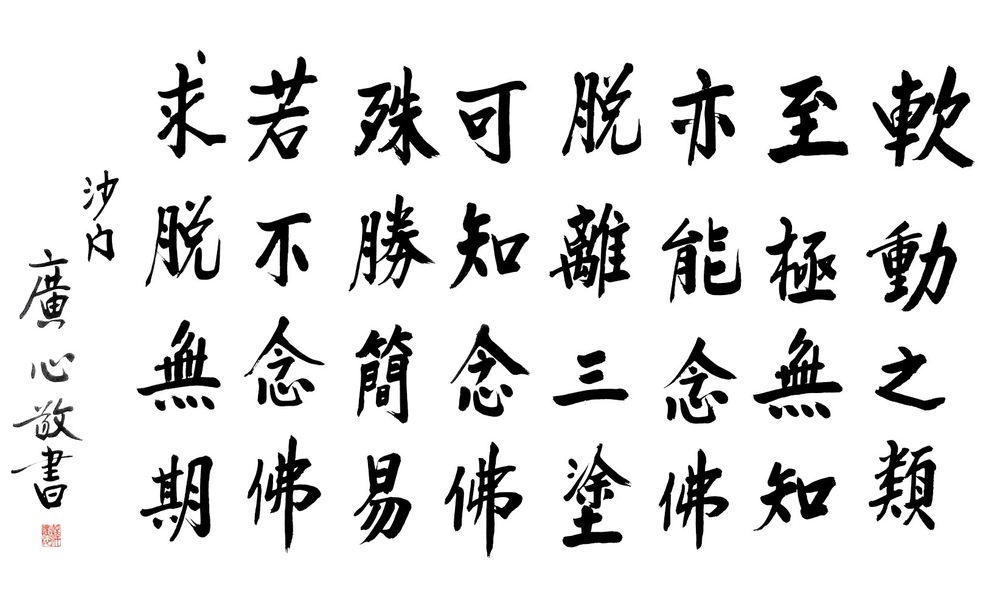 軟動之類
至極無知
亦能念佛
脱離三塗
可知念佛
殊勝簡易
若不念佛
求脱無期
沙門
廣心敬書